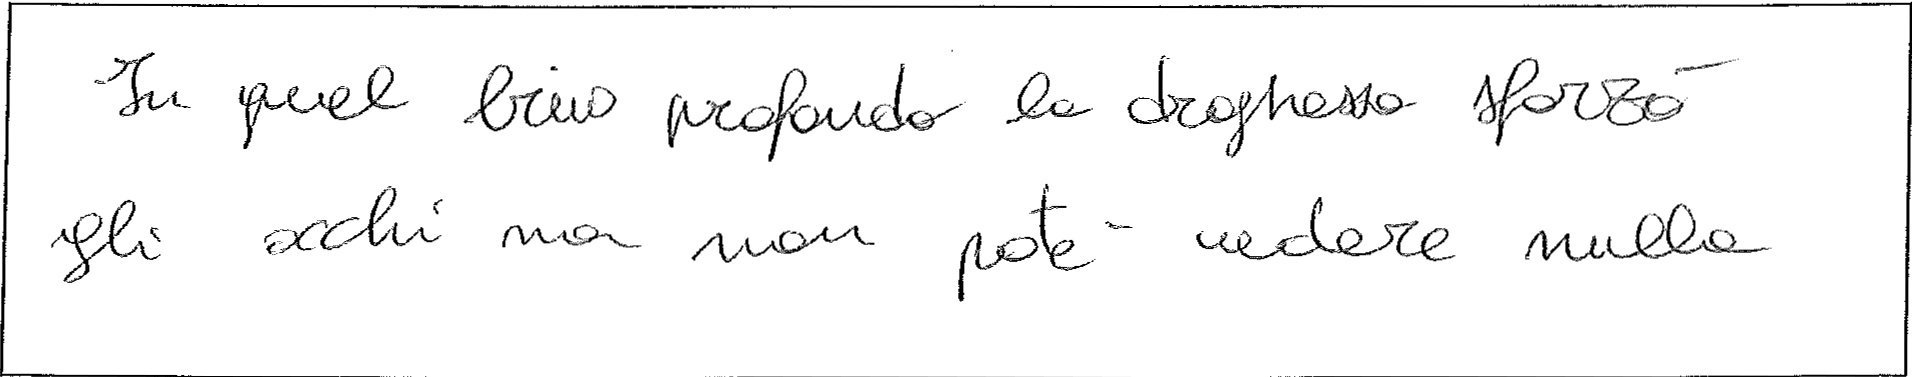 In quel brivo profondo la draghessa sforzò
gli occhi ma non poté vedere nulla